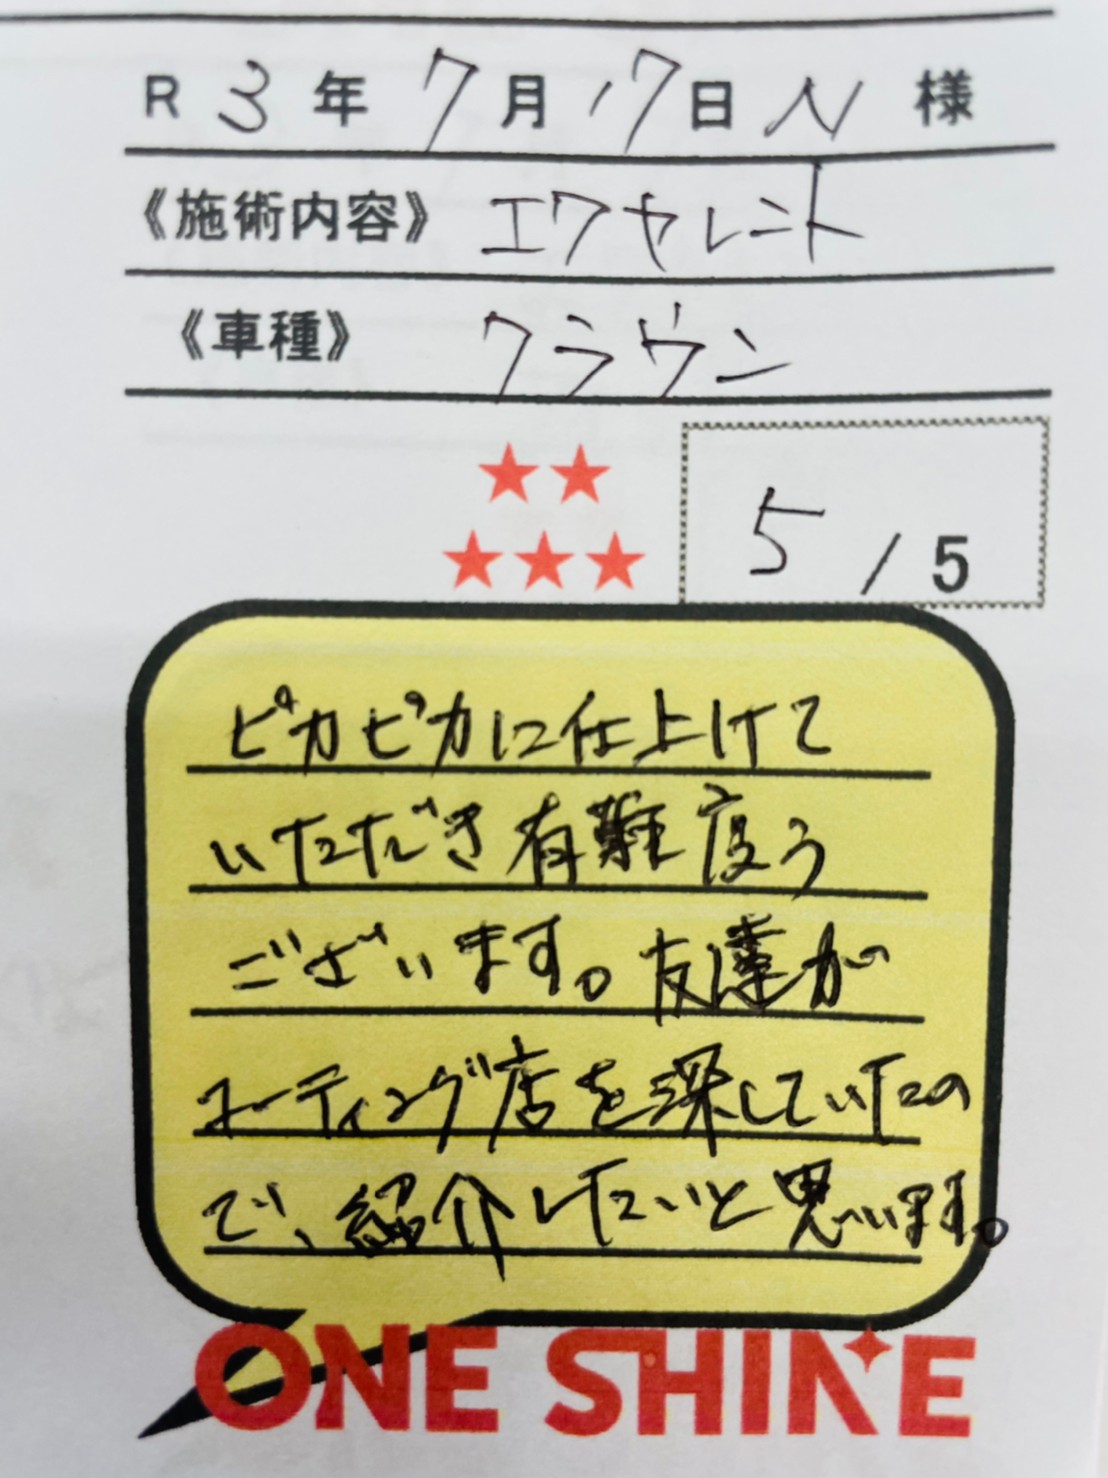 R 3年 7月17日 N 様
《施術内容》 エクセレント
《車種》 クラウン
5/5
ピカピカに仕上げて
いただき有難度う
ございます。友達が
コーティング店を探していたの
で、紹介したいと思います。
ONE SHINE